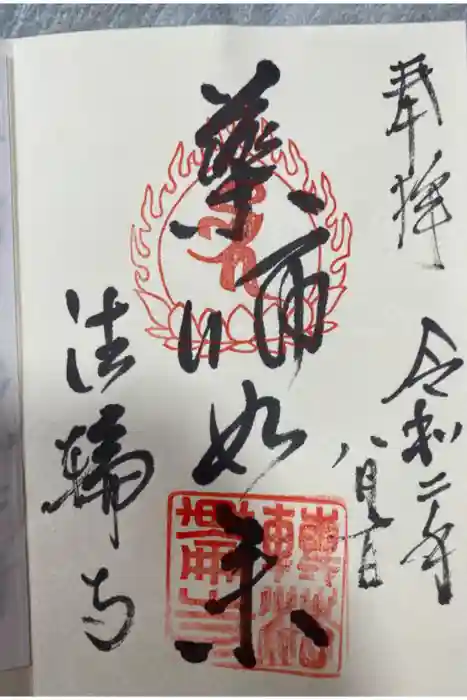 奉拝
令和二年
八月
薬師如来
法輪寺